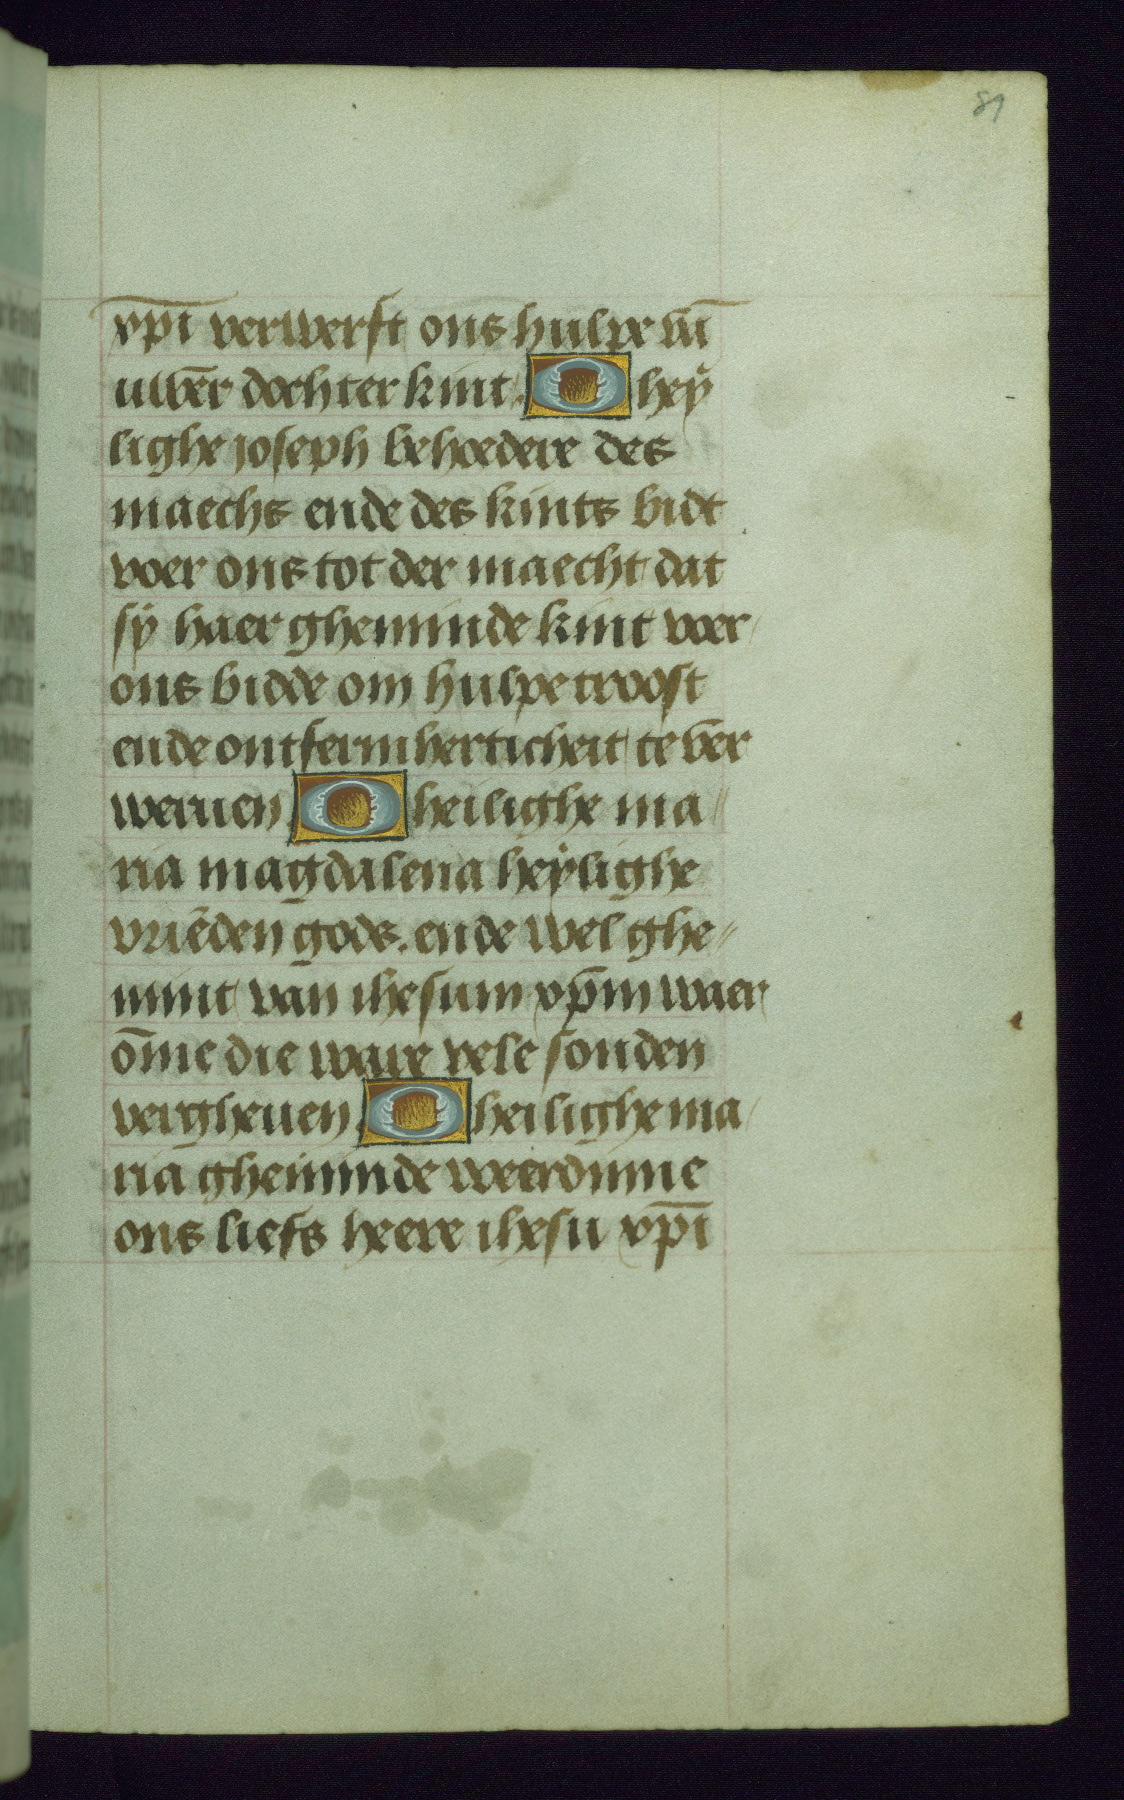 81
xp̅i verwerft ons hulpe vā
uwer̄ dochter kint. O hey
lighe joseph behoedere des
maechs ende des kints bidt
voer ons tot der maecht dat
sÿ haer gheminde kint voer
ons bidde om hulpe troost
ende ontfermherticheit te ver
weruen O heilighe ma//
ria magdalena heÿlighe
vriēden gods. ende wel ghe//
mint van ihesum xp̅m waer
ōme die ware vele sonden
vergheuen. O heilighe ma/
ria gheminde weerdinne
ons liefs heere ihesu xp̅i